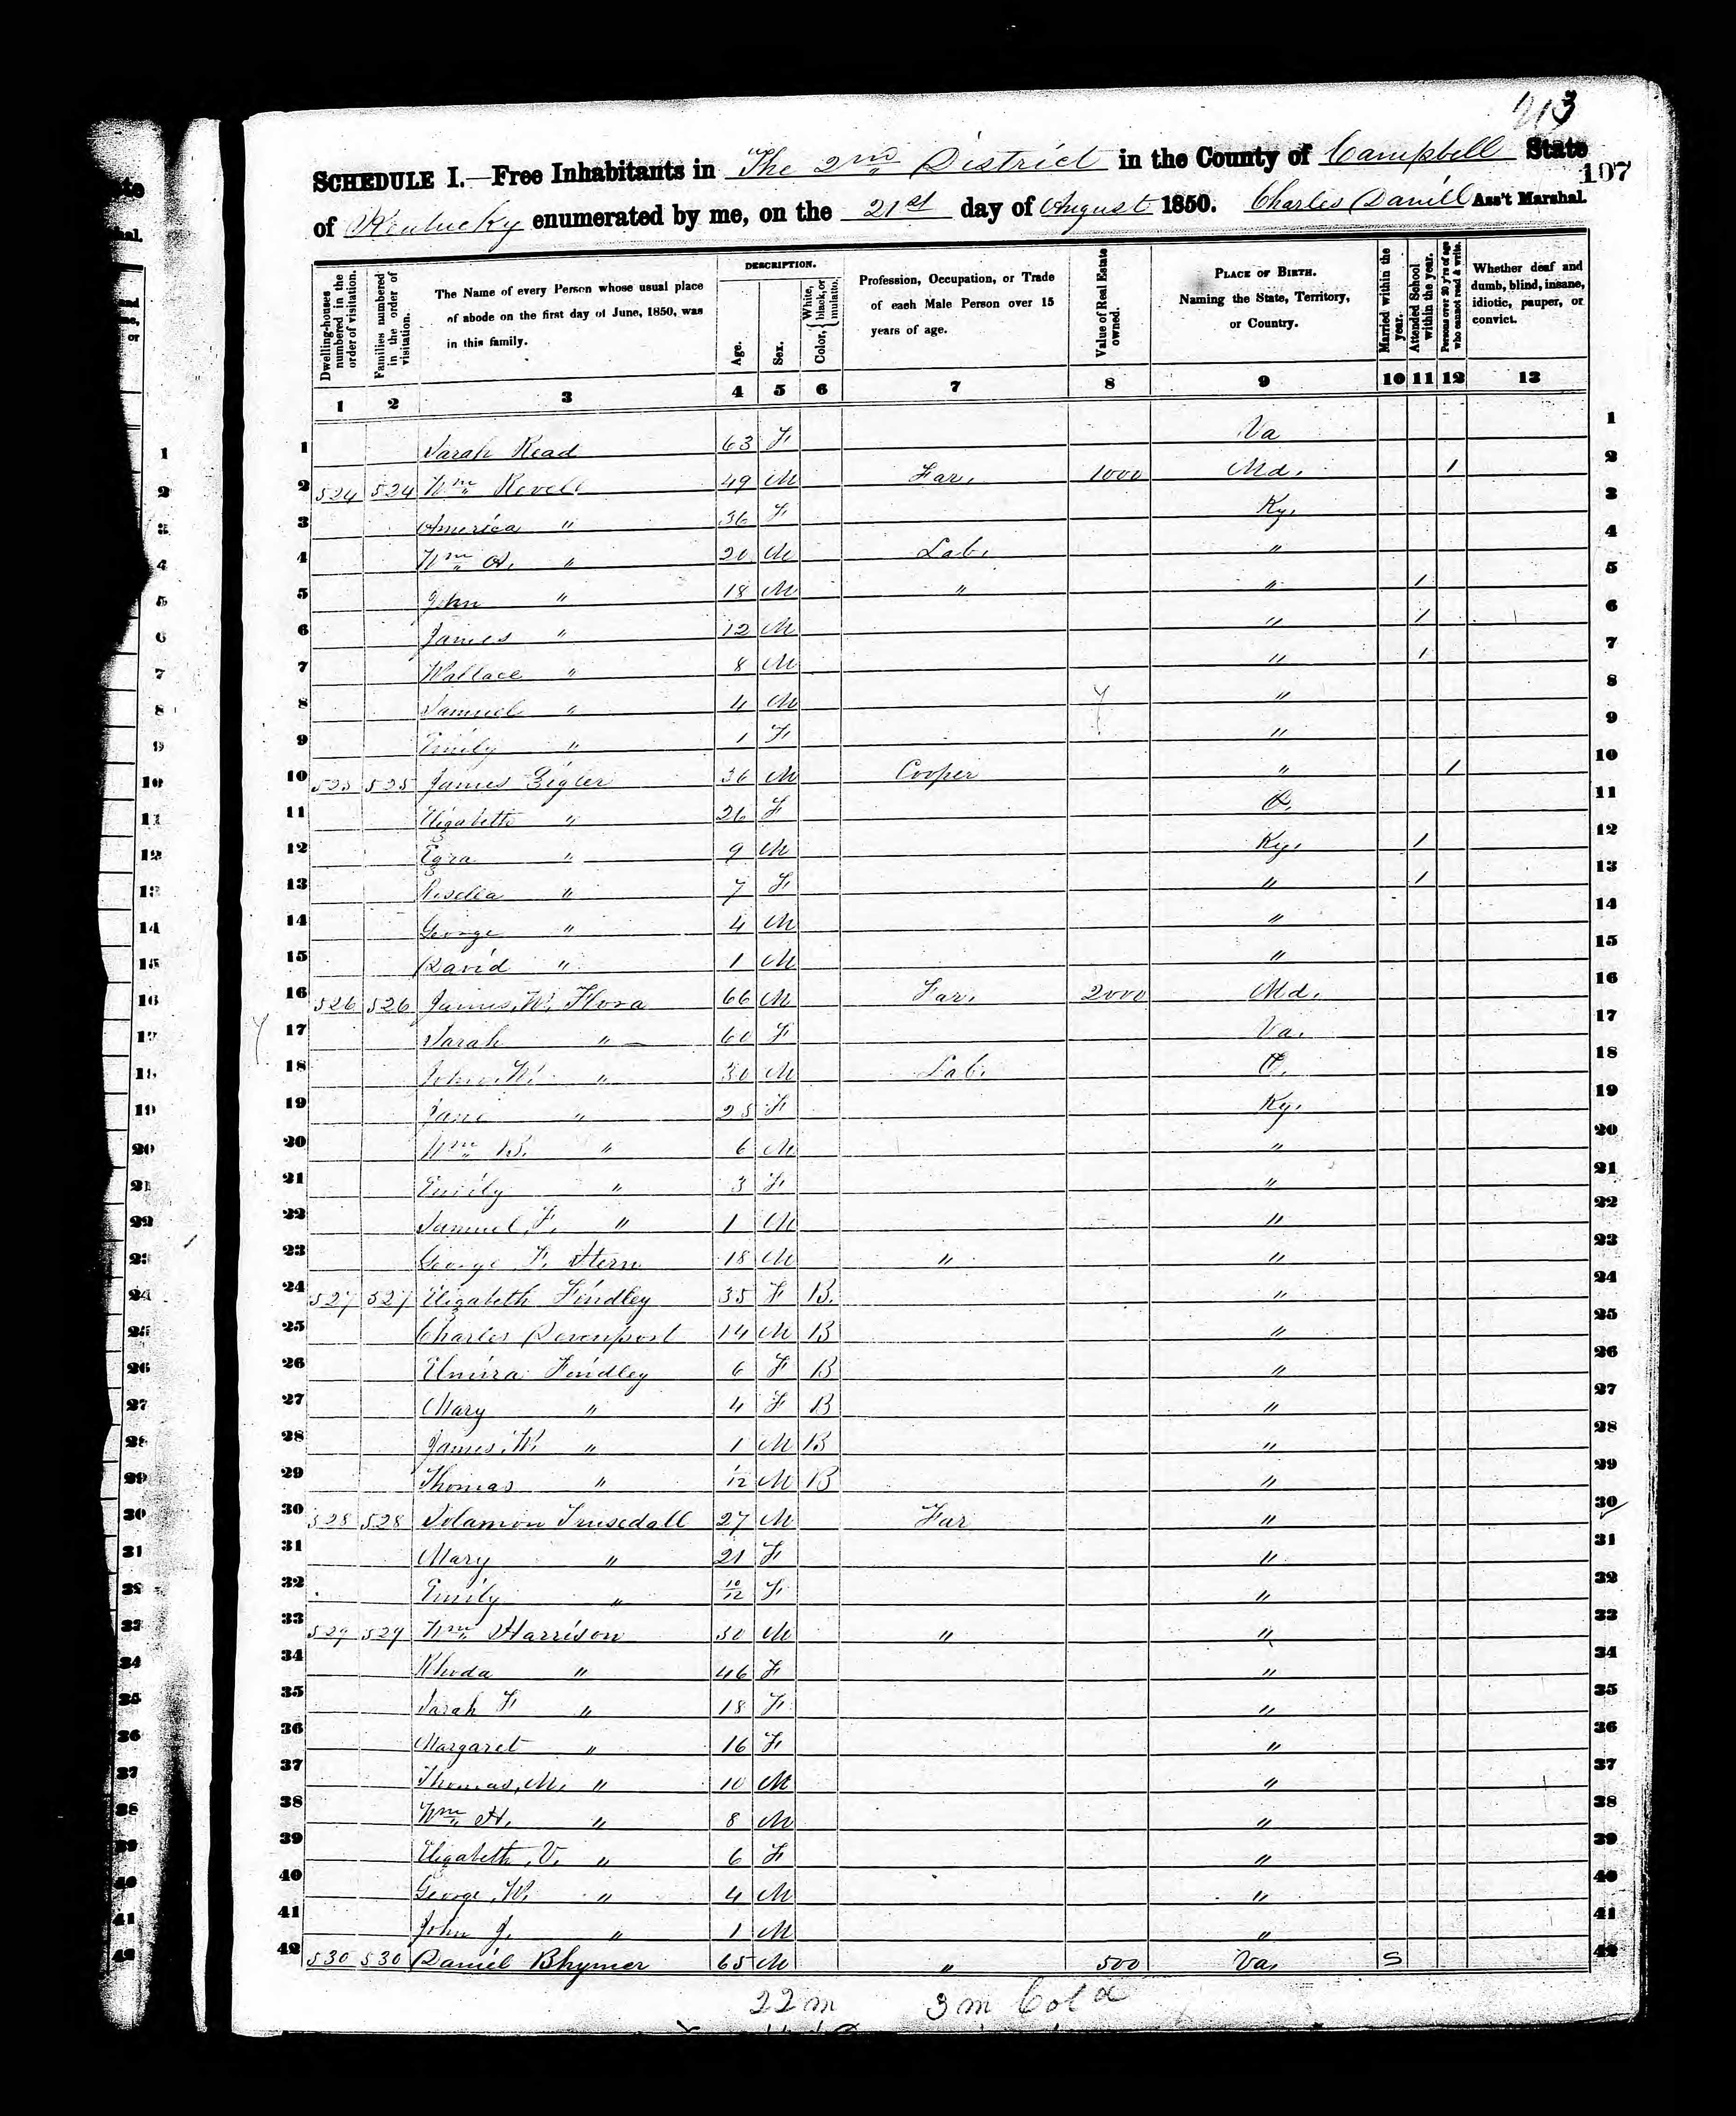 213
SCHEDULE I.—Free Inhabitants in The 2nd District in the County of Campbell State
107
of Kentucky enumerated by me, on the 21st day of August 1850. Charles Daniel Ass't Marshal.
Dwelling-houses numbered in the order of visitation.
Families numbered in the order of visitation.
The Name of every Person whose usual place of abode on the first day of June, 1850, was in this family.
DESCRIPTION.
Age.
Sex.
Color, { White, black, or mulatto.
Profession, Occupation, or Trade of each Male Person over 15 years of age.
Value of Real Estate owned.
PLACE OF BIRTH. Naming the State, Territory, or Country.
Married within the year.
Attended School within the year.
Persons over 20 y'rs of age who cannot read & write.
Whether deaf and dumb, blind, insane, idiotic, pauper, or convict.
1 2 3 4 5 6 7 8 9 10 11 12 13
1 Sarah Read 63 F Va 1
2 524 524 Wm Revell 49 M Far. 1000 Md. 1 2
3 America " 36 F Ky. 3
4 Wm A. " 20 M Lab. " 4
5 John " 18 M " " 1 5
6 James " 12 M " 1 6
7 Wallace " 8 M " 1 7
8 Samuel " 4 M " 8
9 Emily " 1 F " 9
10 525 525 James Zigler 36 M Cooper " 1 10
11 Elizabeth " 26 F O. 11
12 Ezra " 9 M Ky. 1 12
13 " 7 F " 1 13
14 George " 4 M " 14
15 David " 1 M " 15
16 526 526 James, W. Flora 66 M Far. 2000 Md. 16
17 Sarah " 60 F Va. 17
18 John W. " 30 M Lab. O. 18
19 Jane " 25 F Ky. 19
20 Wm B. " 6 M " 20
21 Emily " 3 F " 21
22 Samuel, F. " 1 M " 22
23 George F. Stern 18 M " " 23
24 527 527 Elizabeth Findley 35 F B. " 24
25 Charles Davenport 14 M B " 25
26 Elmira Findley 6 F B " 26
27 Mary " 4 F B " 27
28 James, W. " 1 M B " 28
29 Thomas " 1/12 M B " 29
30 528 528 Solamon Trusedall 27 M Far " 30
31 Mary " 21 F " 31
32 Emily " 10/12 F " 32
33 529 529 Wm Harrison 50 M " " 33
34 Rhoda " 46 F " 34
35 Sarah F " 18 F " 35
36 Margaret " 16 F " 36
37 Thomas, M. " 10 M " 37
38 Wm H. " 8 M " 38
39 Elizabeth, V. " 6 F " 39
40 George, W. " 4 M " 40
41 John J. " 1 M " 41
42 530 530 Daniel Bhymer 65 M " 500 Va. S 42
22 m 3 m Cold